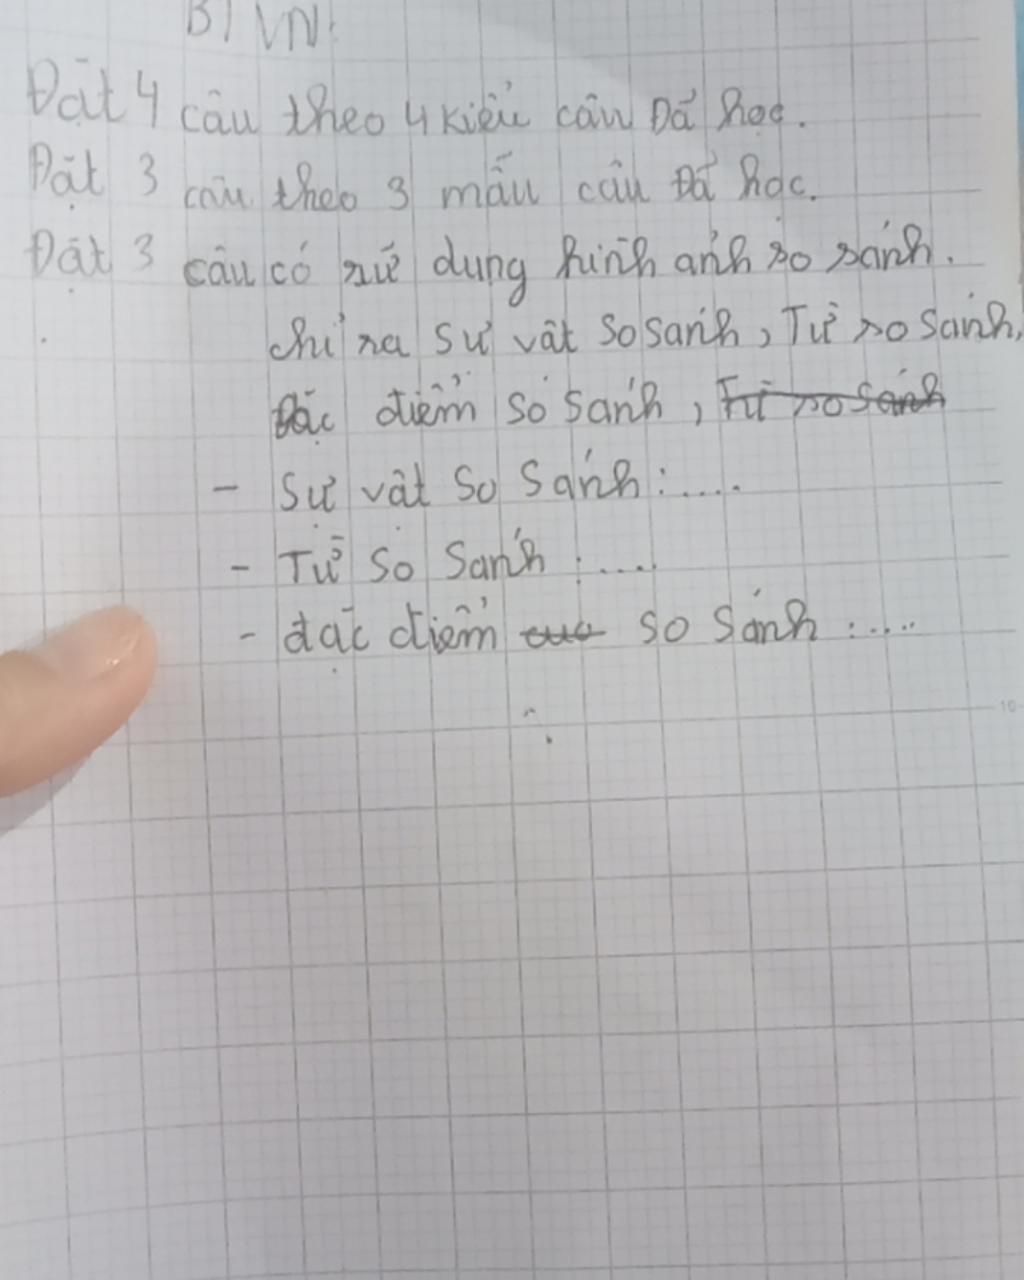 BTVN:
Đặt 4 câu theo 4 kiểu câu Đã học.
Đặt 3 câu theo 3 mẫu câu Đã học.
Đặt 3 câu có sử dụng hình ảnh so sánh.
chỉ ra sự vật so sánh, Từ so sánh,
Đặc điểm so sánh, Từ so sánh
- Sự vật so sánh:....
- Từ so sánh:....
- đặc điểm của so sánh:....
10